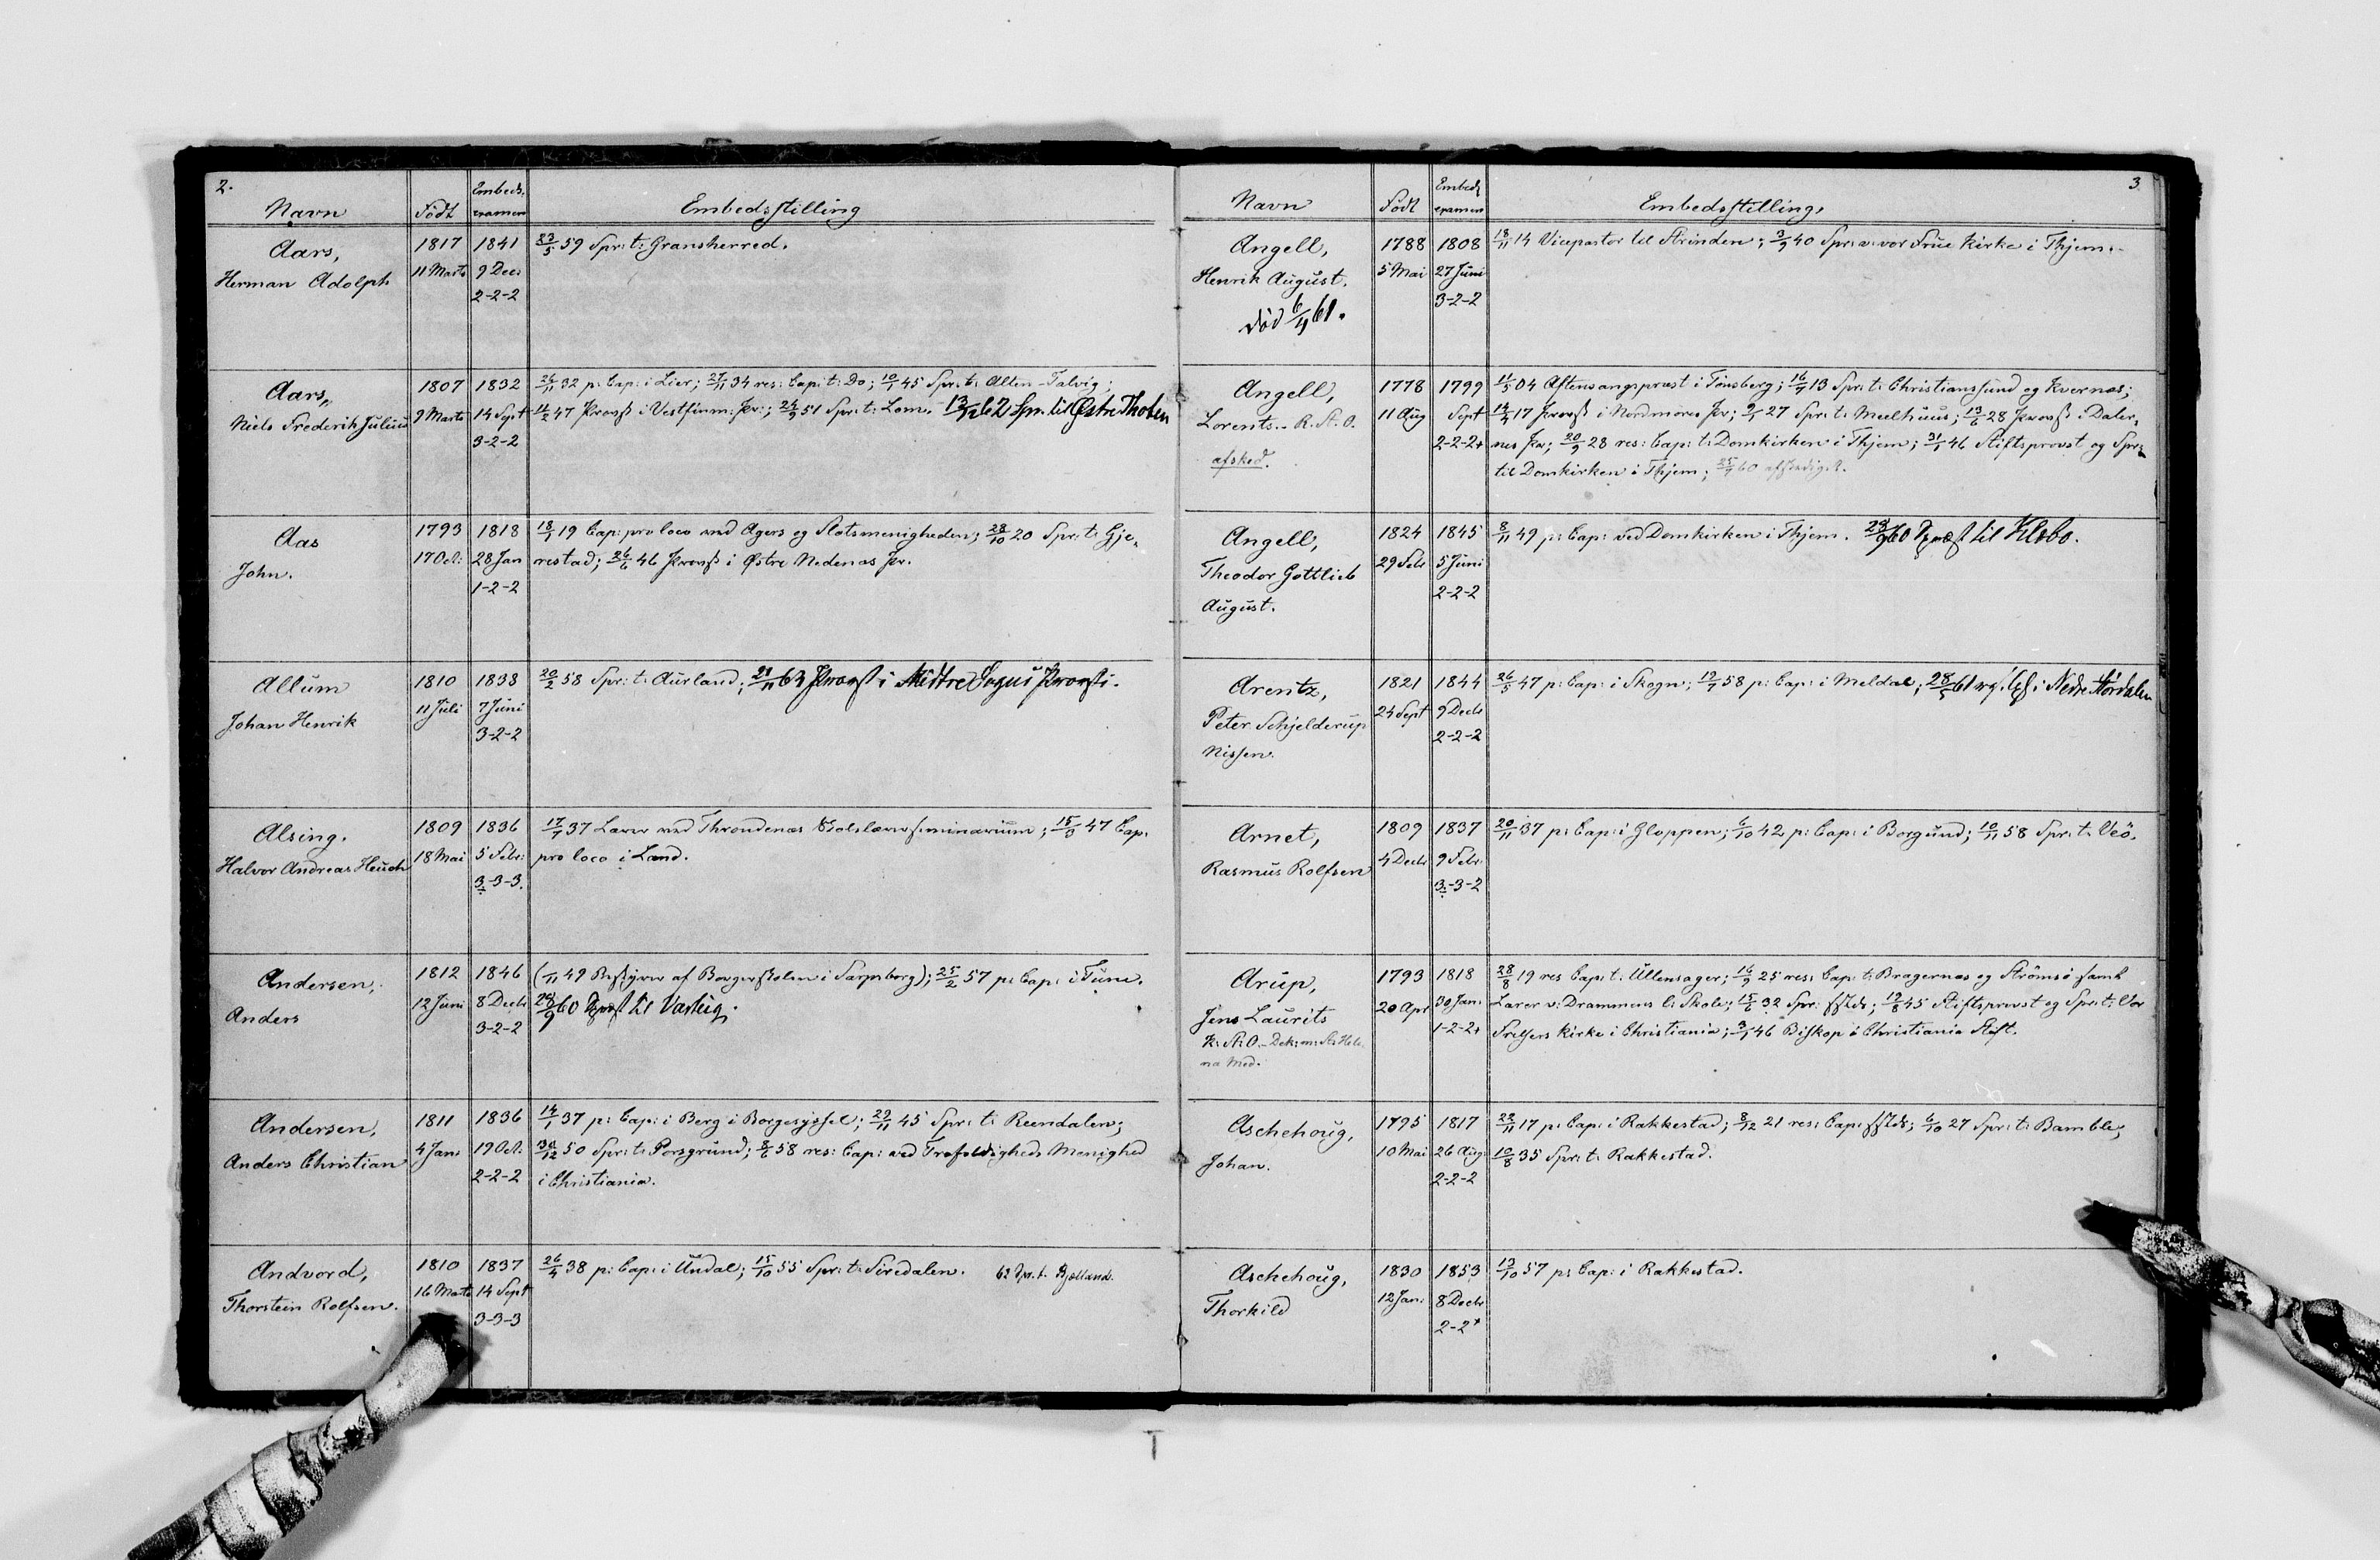 2.
Navn Födt Embeds. examen Embedsstilling
Aars, 1817 1841 23/5 59 Spr: t: Gransherred.
11 Marts 9 Dec:
Herman Adolph
2-2-2
Aars, 1807 1832 26/11 32 p: Cap: i Lier; 27/11 34 res: Cap: t: Do; 10/1 45 Spr: t: Alten-Talvig;
Niels Frederik Julius 9 Marts 14 Sept 47 Provst i Vestfinm: Pr:; 24/9 51 Spr: t: Lom. 13/9 62 Spr. til Østre Thoten
3-2-2
Aas 1793 1818 18/1 19 Cap: pro loco ved Agers og Slotsmenigheden; 28/10 20 Spr: t: Gje-
John. 17 Oct: 28 Jan restad; 26/6 46 Provst i Østre Nedenæs Pr.
1-2-2
Allum 1810 1838 20/2 58 Spr: t: Aurland; 21/11 63 Provst i Midtre Sogns Provsti.
11 Juli 7 Juni
Johan Henrik
3-2-2
Alsing. 1809 1836 17/7 37 Lærer ved Throndenæs Skolelærerseminarium; 15/9 47 Cap:
Halvor Andreas Heuch 18 Mai 5 Febr: pro loco i Land.
3-3-3.
Andersen, 1812 1846 (/11 49 Bestyrer af Borgerskolen i Sarpsborg); 25/2 57 p: Cap: i Tune.
Anders 12 Juni 8 Decb 29/9 60 Spræst til Varteig.
3-2-2
Andersen, 1811 1836 14/1 37 p: Cap: i Berg i Borgesyssel; 29/11 45 Spr: t: Reendalen;
Anders Christian 4 Jan: 19 Oct: 30/12 50 Spr: t: Porsgrund; 8/6 58 res: Cap: ved Trefoldigheds Menighed
2-2-2 i Christiania.
Andvord, 1810 1837 26/4 38 p: Cap: i Undal; 15/10 55 Spr: t: Siredalen. 62 Spr. t. Bjelland.
16 Marts 14 Sept
Thorstein Rolfsen.
3-3-3
3
Navn Födt Embeds examen Embedsstilling.
Angell, 1788 1808 18/11 14 Vicepastor til Strinden; 3/9 40 Spr: v: vor Frue Kirke i Thjem.
Henrik August. 5 Mai 27 Juni
3-2-2
död 6/4 61.
Angell, 1778 1799 11/5 04 Aftensangspræst i Tönsberg; 16/7 13 Spr: t: Christianssund og Kvernæs;
Lorents. - R. St. O. 11 Aug Sept 17 Provst i Nordmöres Pr; 9/1 27 Spr: t: Meelhuus; 13/6 28 Provst i Daler-
2-2-2+ nes Pr; 20/9 28 res: Cap: t: Domkirken i Thjem; 31/1 46 Stiftsprovst og Spr:
afsked. til Domkirken i Thjem; 25/9 60 afskediget.
Angell, 1824 1845 8/11 49 p: Cap: ved Domkirken i Thjem. 29/9 60 Spræst til Klæbo.
Theodor Gottlieb 29 Febr 5 Juni
August. 2-2-2
Arentz, 1821 1844 26/5 47 p: Cap: i Skogn; 19/7 58 p: Cap: i Meldal; 28/5 61 i Nedre Stördalen
Peter Schjelderup 24 Sept 9 Decb
Nissen. 2-2-2
Arnet, 1809 1837 20/11 37 p: Cap: i Gloppen; 6/10 42 p: Cap: i Borgund; 10/11 58 Spr: t: Veö.
Rasmus Rolfsen 4 Decb 9 Febr.
3-3-2
Arup, 1793 1818 28/8 19 res Cap: t: Ullensager; 16/9 25 res: Cap: t: Bragernæs og Strömsö samt
Jens Laurits 20 Apr 30 Jan: Lærer v: Drammens l: Skole; 15/6 32 Spr: sstds; 19/8 45 Stiftsprovst og Spr: t: Vor
K: St: O. - Dek: m: St: Hele- 1-2-2+ Frelsers Kirke i Christiania; 3/1 46 Biskop i Christiania Stift.
na Med.
Aschehoug, 1795 1817 22/11 17 p: Cap: i Rakkestad; 8/12 21 res: Cap: sstds; 6/10 27 Spr: t: Bamble;
Johan. 10 Mai 26 Aug 10/8 35 Spr: t: Rakkestad.
2-2-2
Aschehoug, 1830 1853 13/10 57 p: Cap: i Rakkestad.
Thorkild 12 Jan: 8 Decb
2-2+